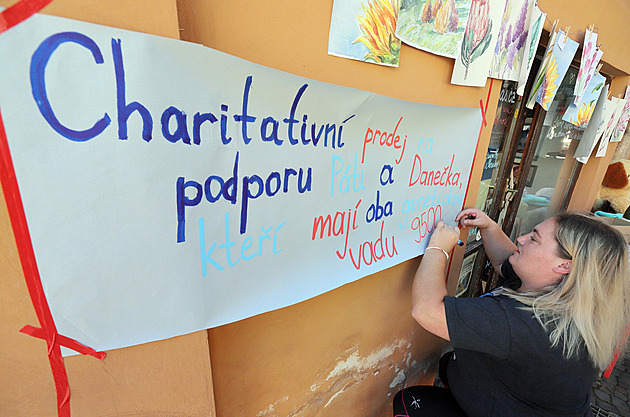 Charitativní prodej na
podporu Páti a Danečka,
kteří mají oba
vadu 9500